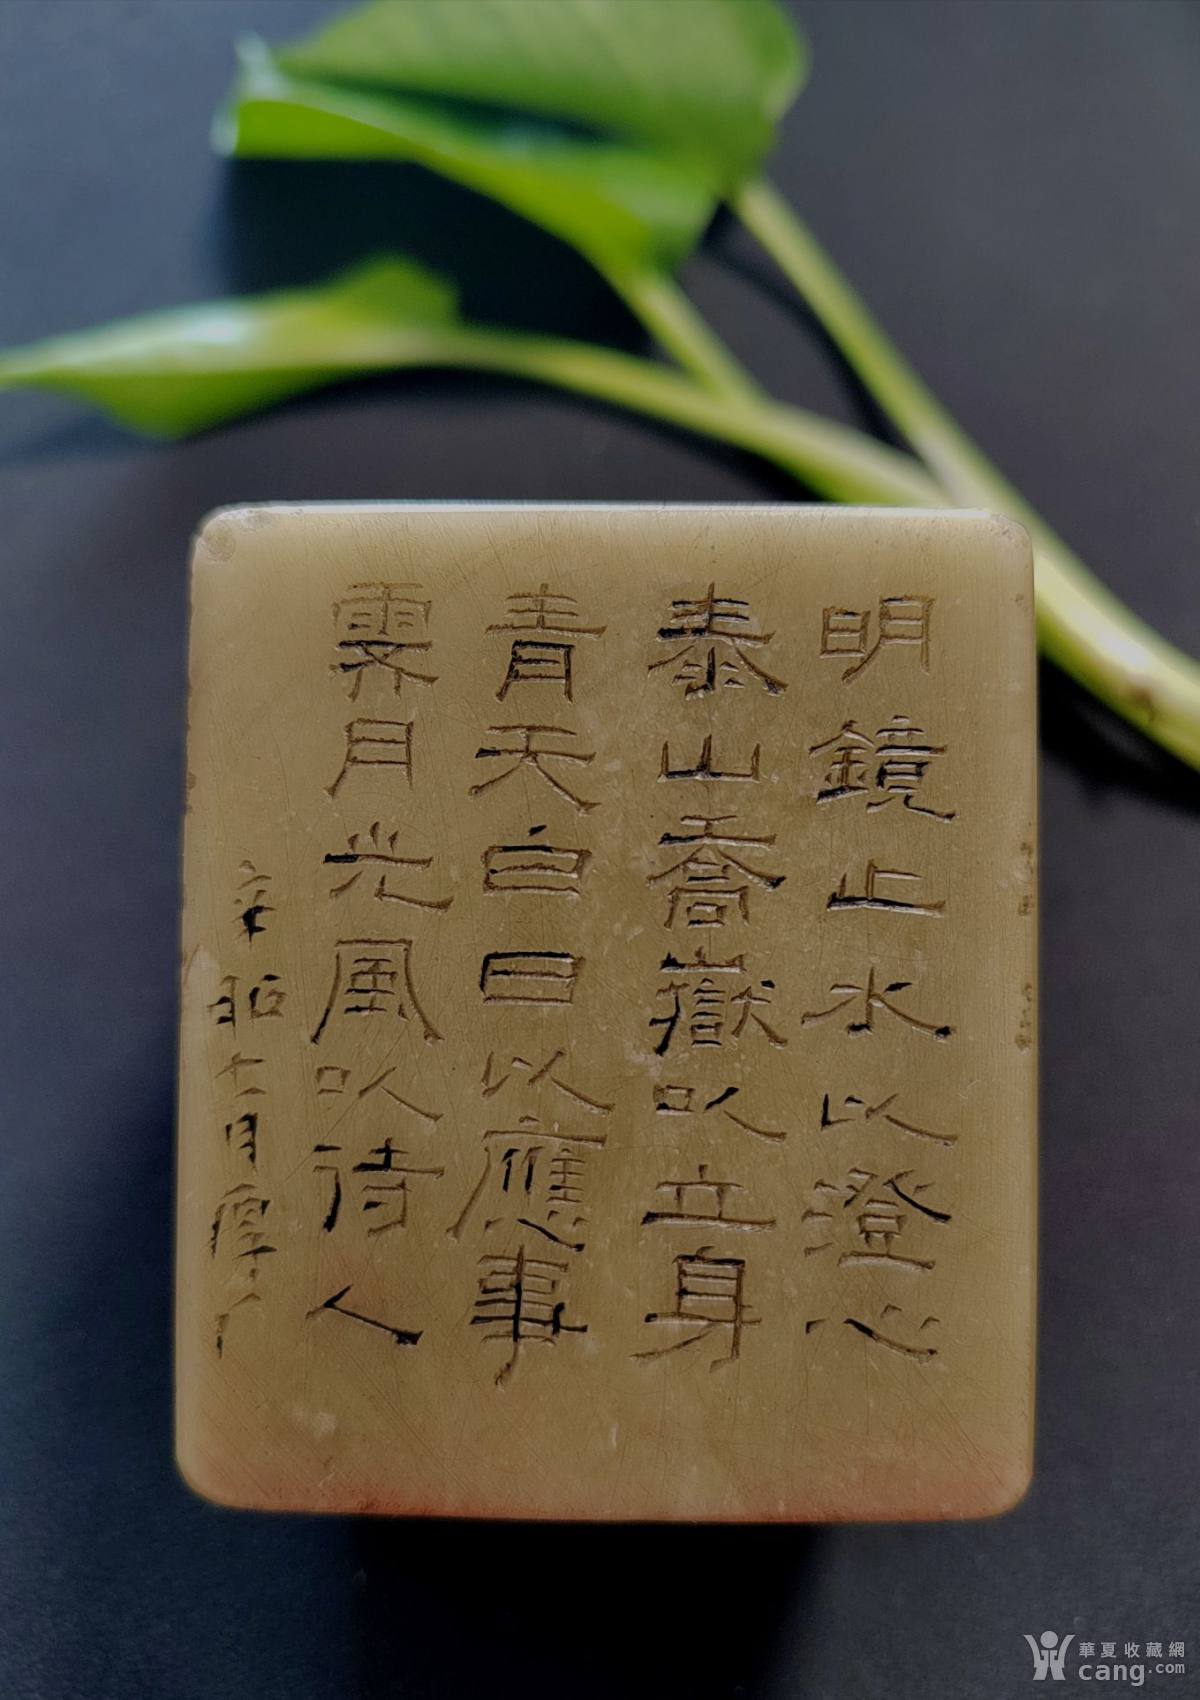 明鏡止水以澄心
泰山喬嶽以立身
青天白日以應事
霽月光風以待人
七月
華夏收藏網
cang.com